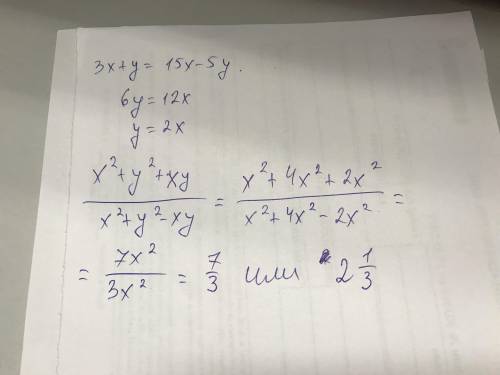 3x+y= 15x-5y.
6y=12x
y=2x
(x²+y²+xy)/(x²+y²-xy) = (x²+4x²+2x²)/(x²+4x²-2x²) =
= 7x²/3x² = 7/3 или 2 1/3